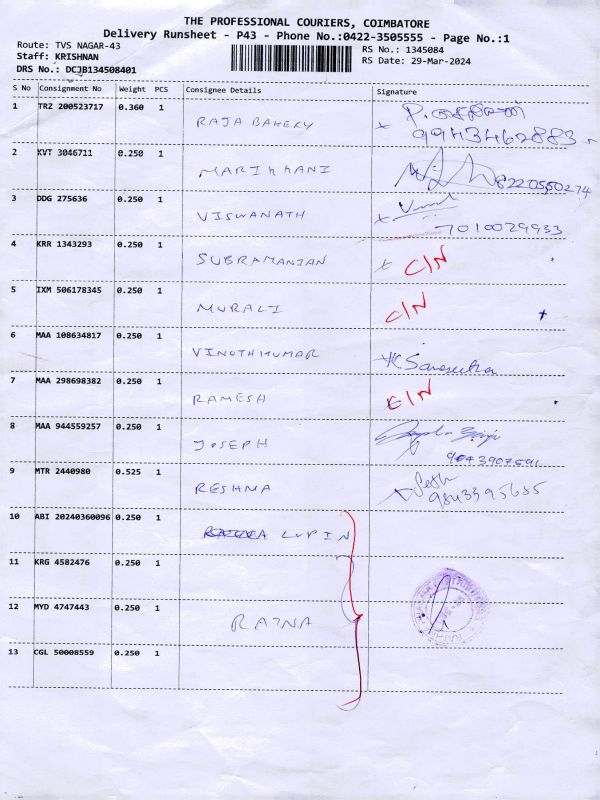 THE PROFESSIONAL COURIERS, COIMBATORE
Delivery Runsheet - P43 - Phone No.:0422-3505555 - Page No.:1
Route: TVS NAGAR-43
Staff: KRISHNAN
DRS No.: DCJB134508401
RS No.: 1345084
RS Date: 29-Mar-2024
S No Consignment No Weight PCS Consignee Details Signature
1 TRZ 200523717 0.360 1 RAJA BAKERY
9943462883
2 KVT 3046711 0.250 1 MARIKKANI 8220550274
3 DDG 275636 0.250 1 VISWANATH
7010029933
4 KRR 1343293 0.250 1 SUBRAMANIAN C/N
5 IXM 506178345 0.250 1 MURALI C/N
6 MAA 108634817 0.250 1 VINOTHKUMAR
7 MAA 298698382 0.250 1 RAMESH C/N
8 MAA 944559257 0.250 1 JOSEPH
9 MTR 2440980 0.525 1 RESHMA
9843395685
10 ABI 20240360096 0.250 1 LUPIN
11 KRG 4582476 0.250 1
12 MYD 4747443 0.250 1 RATNA
13 CGL 50008559 0.250 1